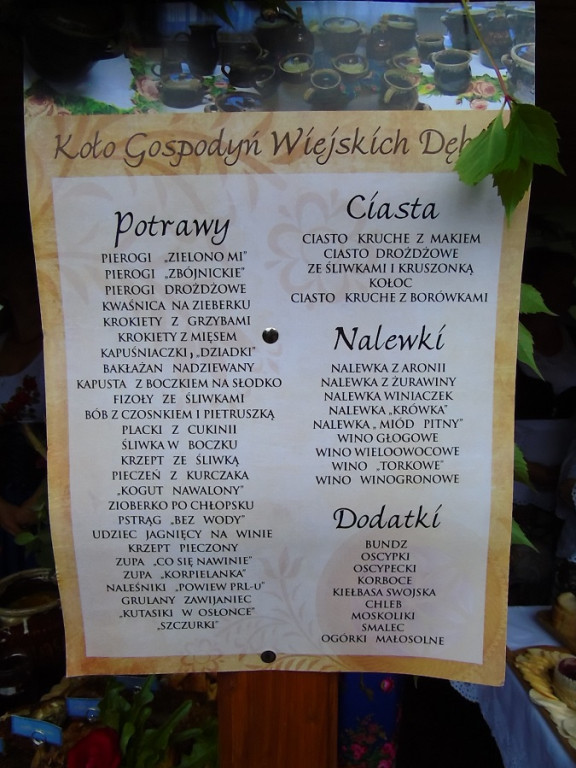 Koło Gospodyń Wiejskich
Potrawy
PIEROGI „ZIELONO MI”
PIEROGI „ZBÓJNICKIE”
PIEROGI DROŻDŻOWE
KWAŚNICA NA ZIEBERKU
KROKIETY Z GRZYBAMI
KROKIETY Z MIĘSEM
KAPUŚNIACZKI, „DZIADKI”
BAKŁAŻAN NADZIEWANY
KAPUSTA Z BOCZKIEM NA SŁODKO
FIZOŁY ZE ŚLIWKAMI
BÓB Z CZOSNKIEM I PIETRUSZKĄ
PLACKI Z CUKINII
ŚLIWKA W BOCZKU
KRZEPT ZE ŚLIWKĄ
PIECZEŃ Z KURCZAKA
„KOGUT NAWALONY”
ZIOBERKO PO CHŁOPSKU
PSTRĄG „BEZ WODY”
UDZIEC JAGNIĘCY NA WINIE
KRZEPT PIECZONY
ZUPA „CO SIĘ NAWINIE”
ZUPA „KORPIELANKA”
NALEŚNIKI „POWIEW PRL-U”
GRULANY ZAWIJANIEC
„KUTASIKI W OSŁONCE”
„SZCZURKI”
Ciasta
CIASTO KRUCHE Z MAKIEM
CIASTO DROŻDŻOWE
ZE ŚLIWKAMI I KRUSZONKĄ
KOŁOC
CIASTO KRUCHE Z BORÓWKAMI
Nalewki
NALEWKA Z ARONII
NALEWKA Z ŻURAWINY
NALEWKA WINIACZEK
NALEWKA „KRÓWKA”
NALEWKA „MIÓD PITNY”
WINO GŁOGOWE
WINO WIELOOWOCOWE
WINO „TORKOWE”
WINO WINOGRONOWE
Dodatki
BUNDZ
OSCYPKI
OSCYPECKI
KORBOCE
KIEŁBASA SWOJSKA
CHLEB
MOSKOLIKI
SMALEC
OGÓRKI MAŁOSOLNE